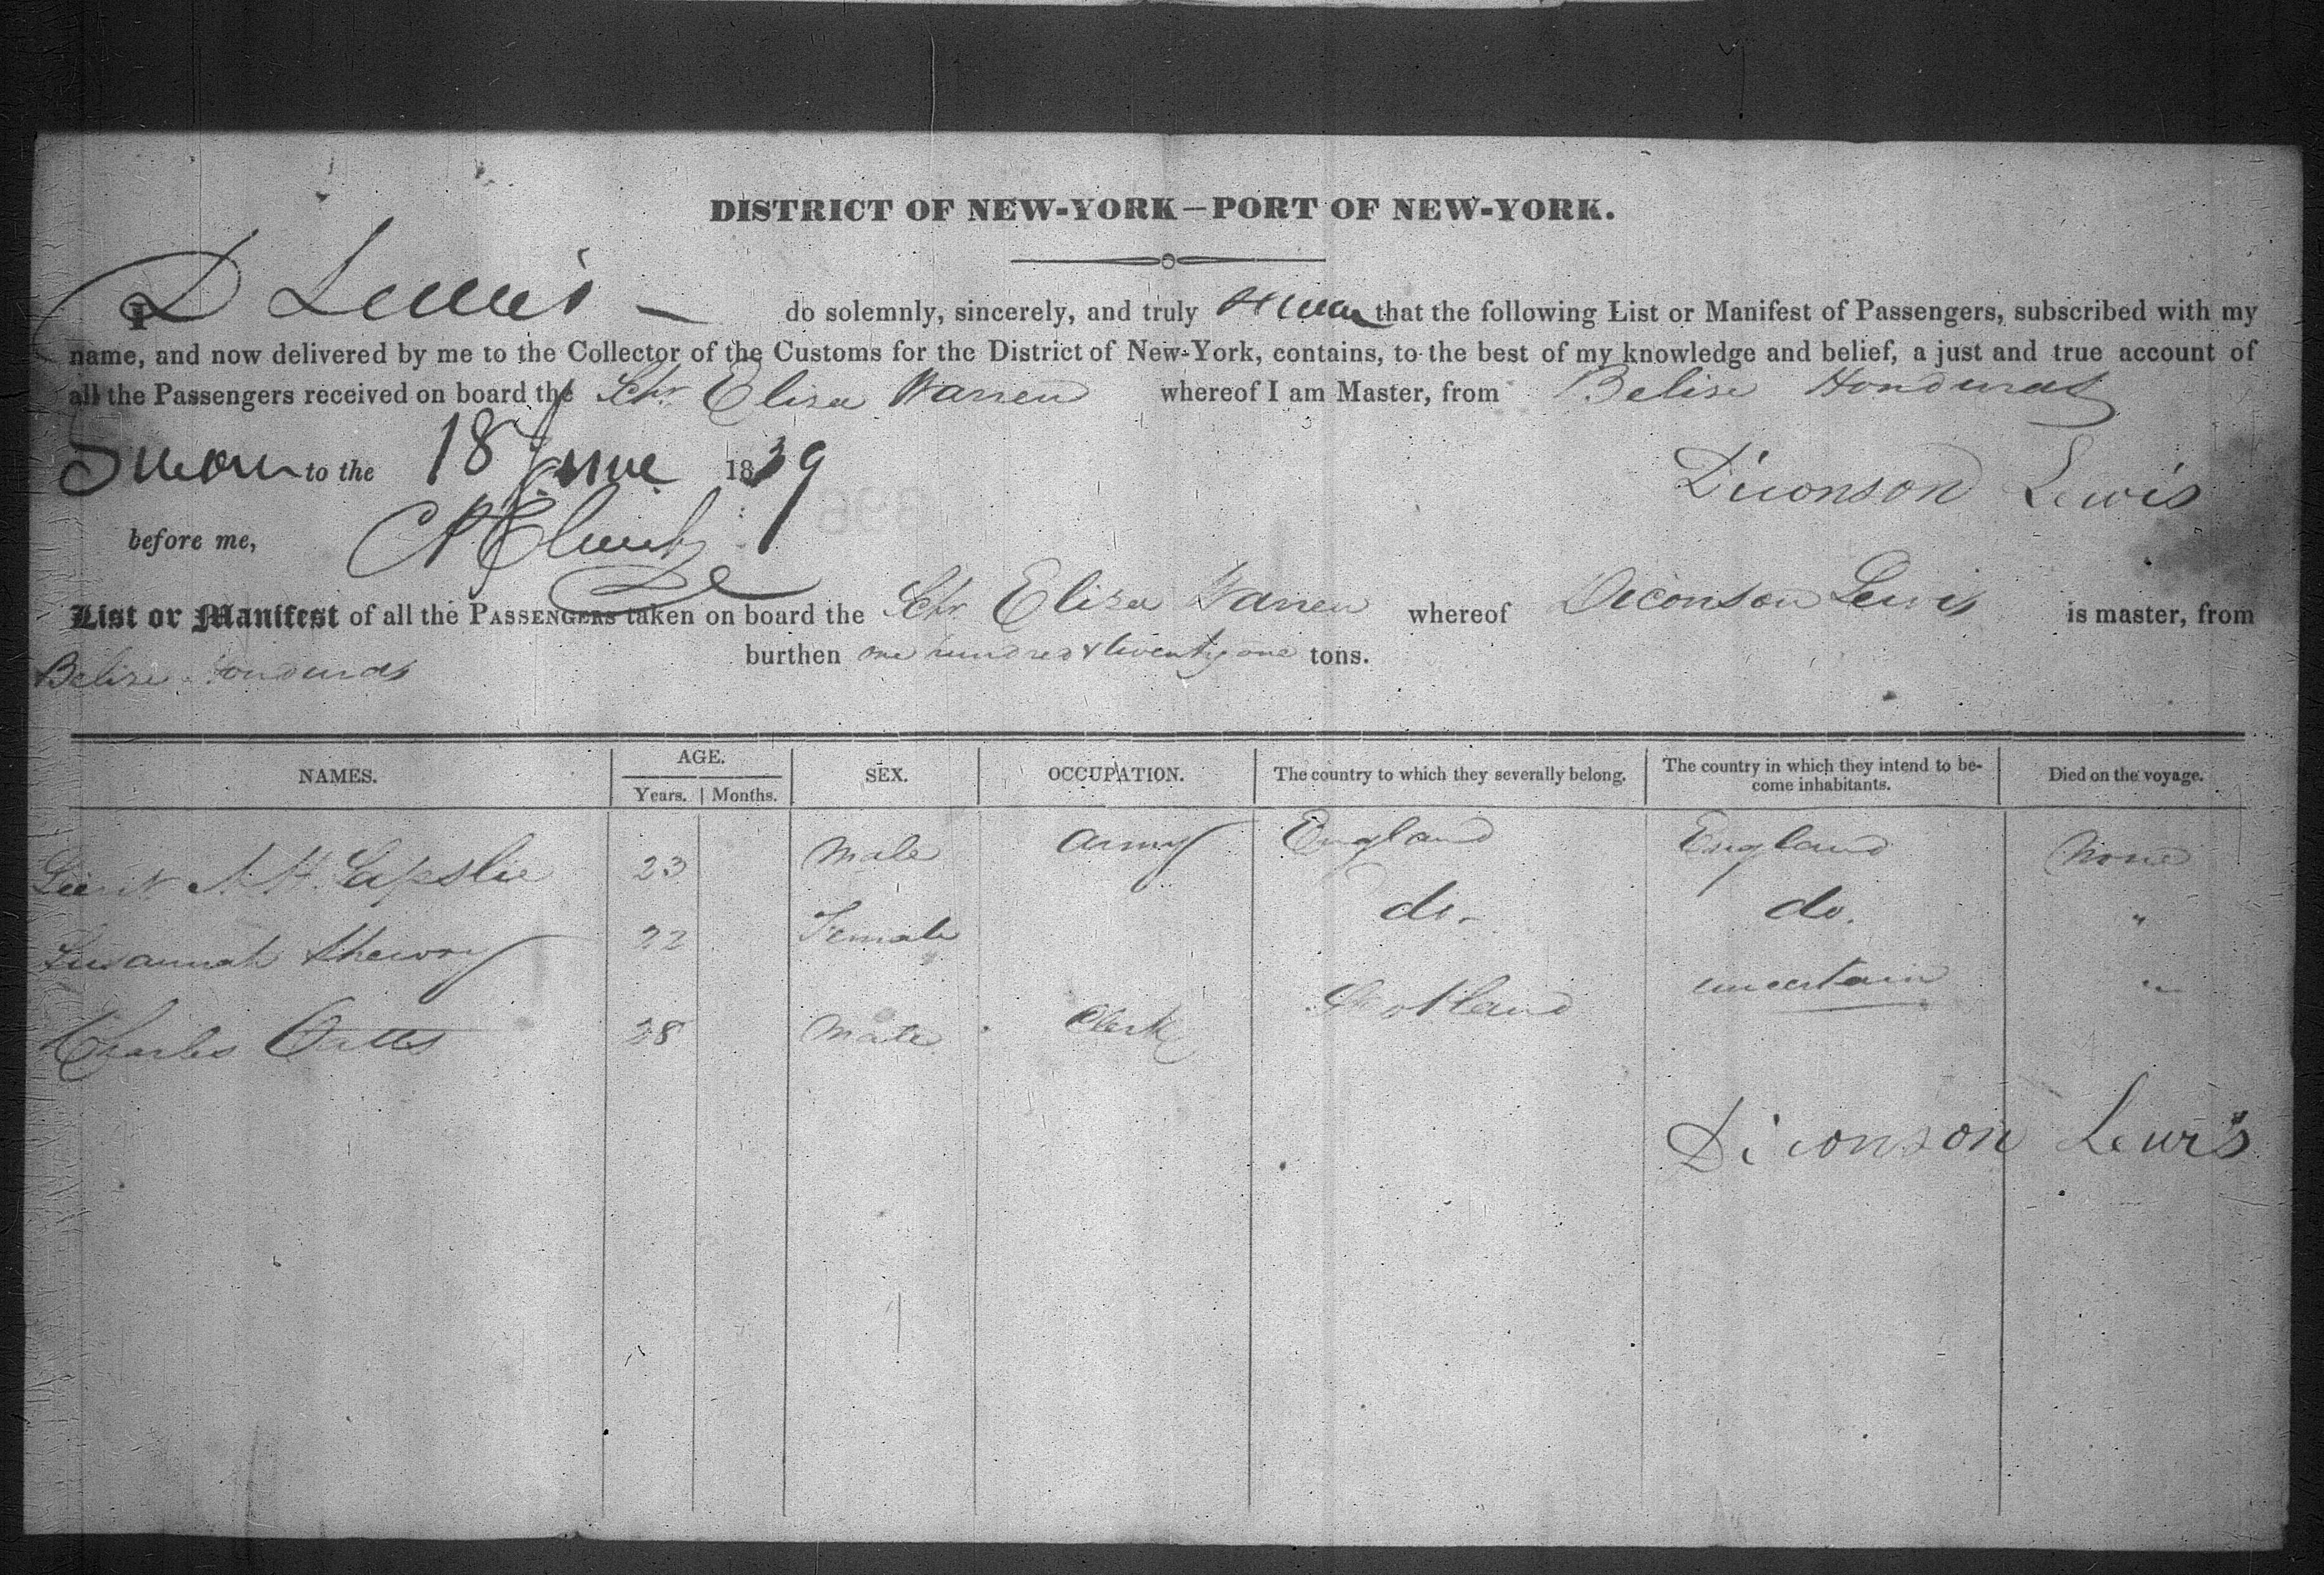 DISTRICT OF NEW-YORK—PORT OF NEW-YORK.
I D Lewis — do solemnly, sincerely, and truly swear that the following List or Manifest of Passengers, subscribed with my
name, and now delivered by me to the Collector of the Customs for the District of New-York, contains, to the best of my knowledge and belief, a just and true account of
all the Passengers received on board the Schr Eliza Warren whereof I am Master, from Belise Honduras
Sworn to the 18 June 1839
Diconson Lewis
before me,
List or Manifest of all the PASSENGERS taken on board the Schr Eliza Warren whereof Diconson Lewis is master, from
Belise Honduras burthen one hundred & twenty one tons.
NAMES. AGE. Years. Months. SEX. OCCUPATION. The country to which they severally belong. The country in which they intend to be-come inhabitants. Died on the voyage.
Lieut A H. Lapslie 23 Male Army England England None
Susannah 22 Female do- do. "
Charles 28 Male Clerk Scotland uncertain "
Diconson Lewis